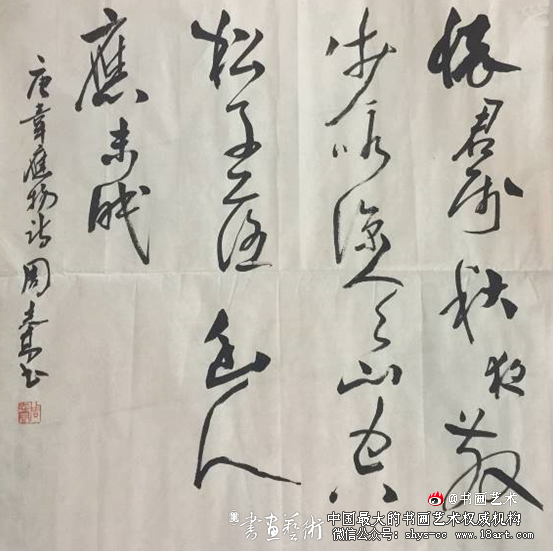 懷君属秋夜散
步詠凉天山空
松子落幽人
應未眠
唐韋應物詩周書
@书画艺术
書画藝術
中国最大的书画艺术权威机构
微信公众号：shys-cc www.18art.com